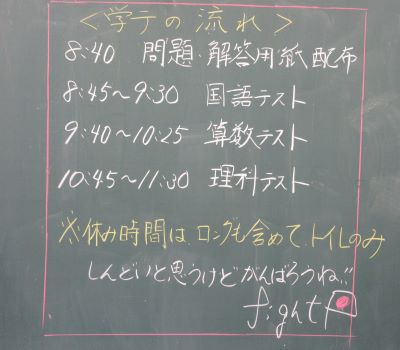 ＜学テの流れ＞
8:40 問題・解答用紙配布
8:45〜9:30 国語テスト
9:40〜10:25 算数テスト
10:45〜11:30 理科テスト
※休み時間は、ロングも含めて、トイレのみ
しんどいと思うけどがんばろうね!!
fight